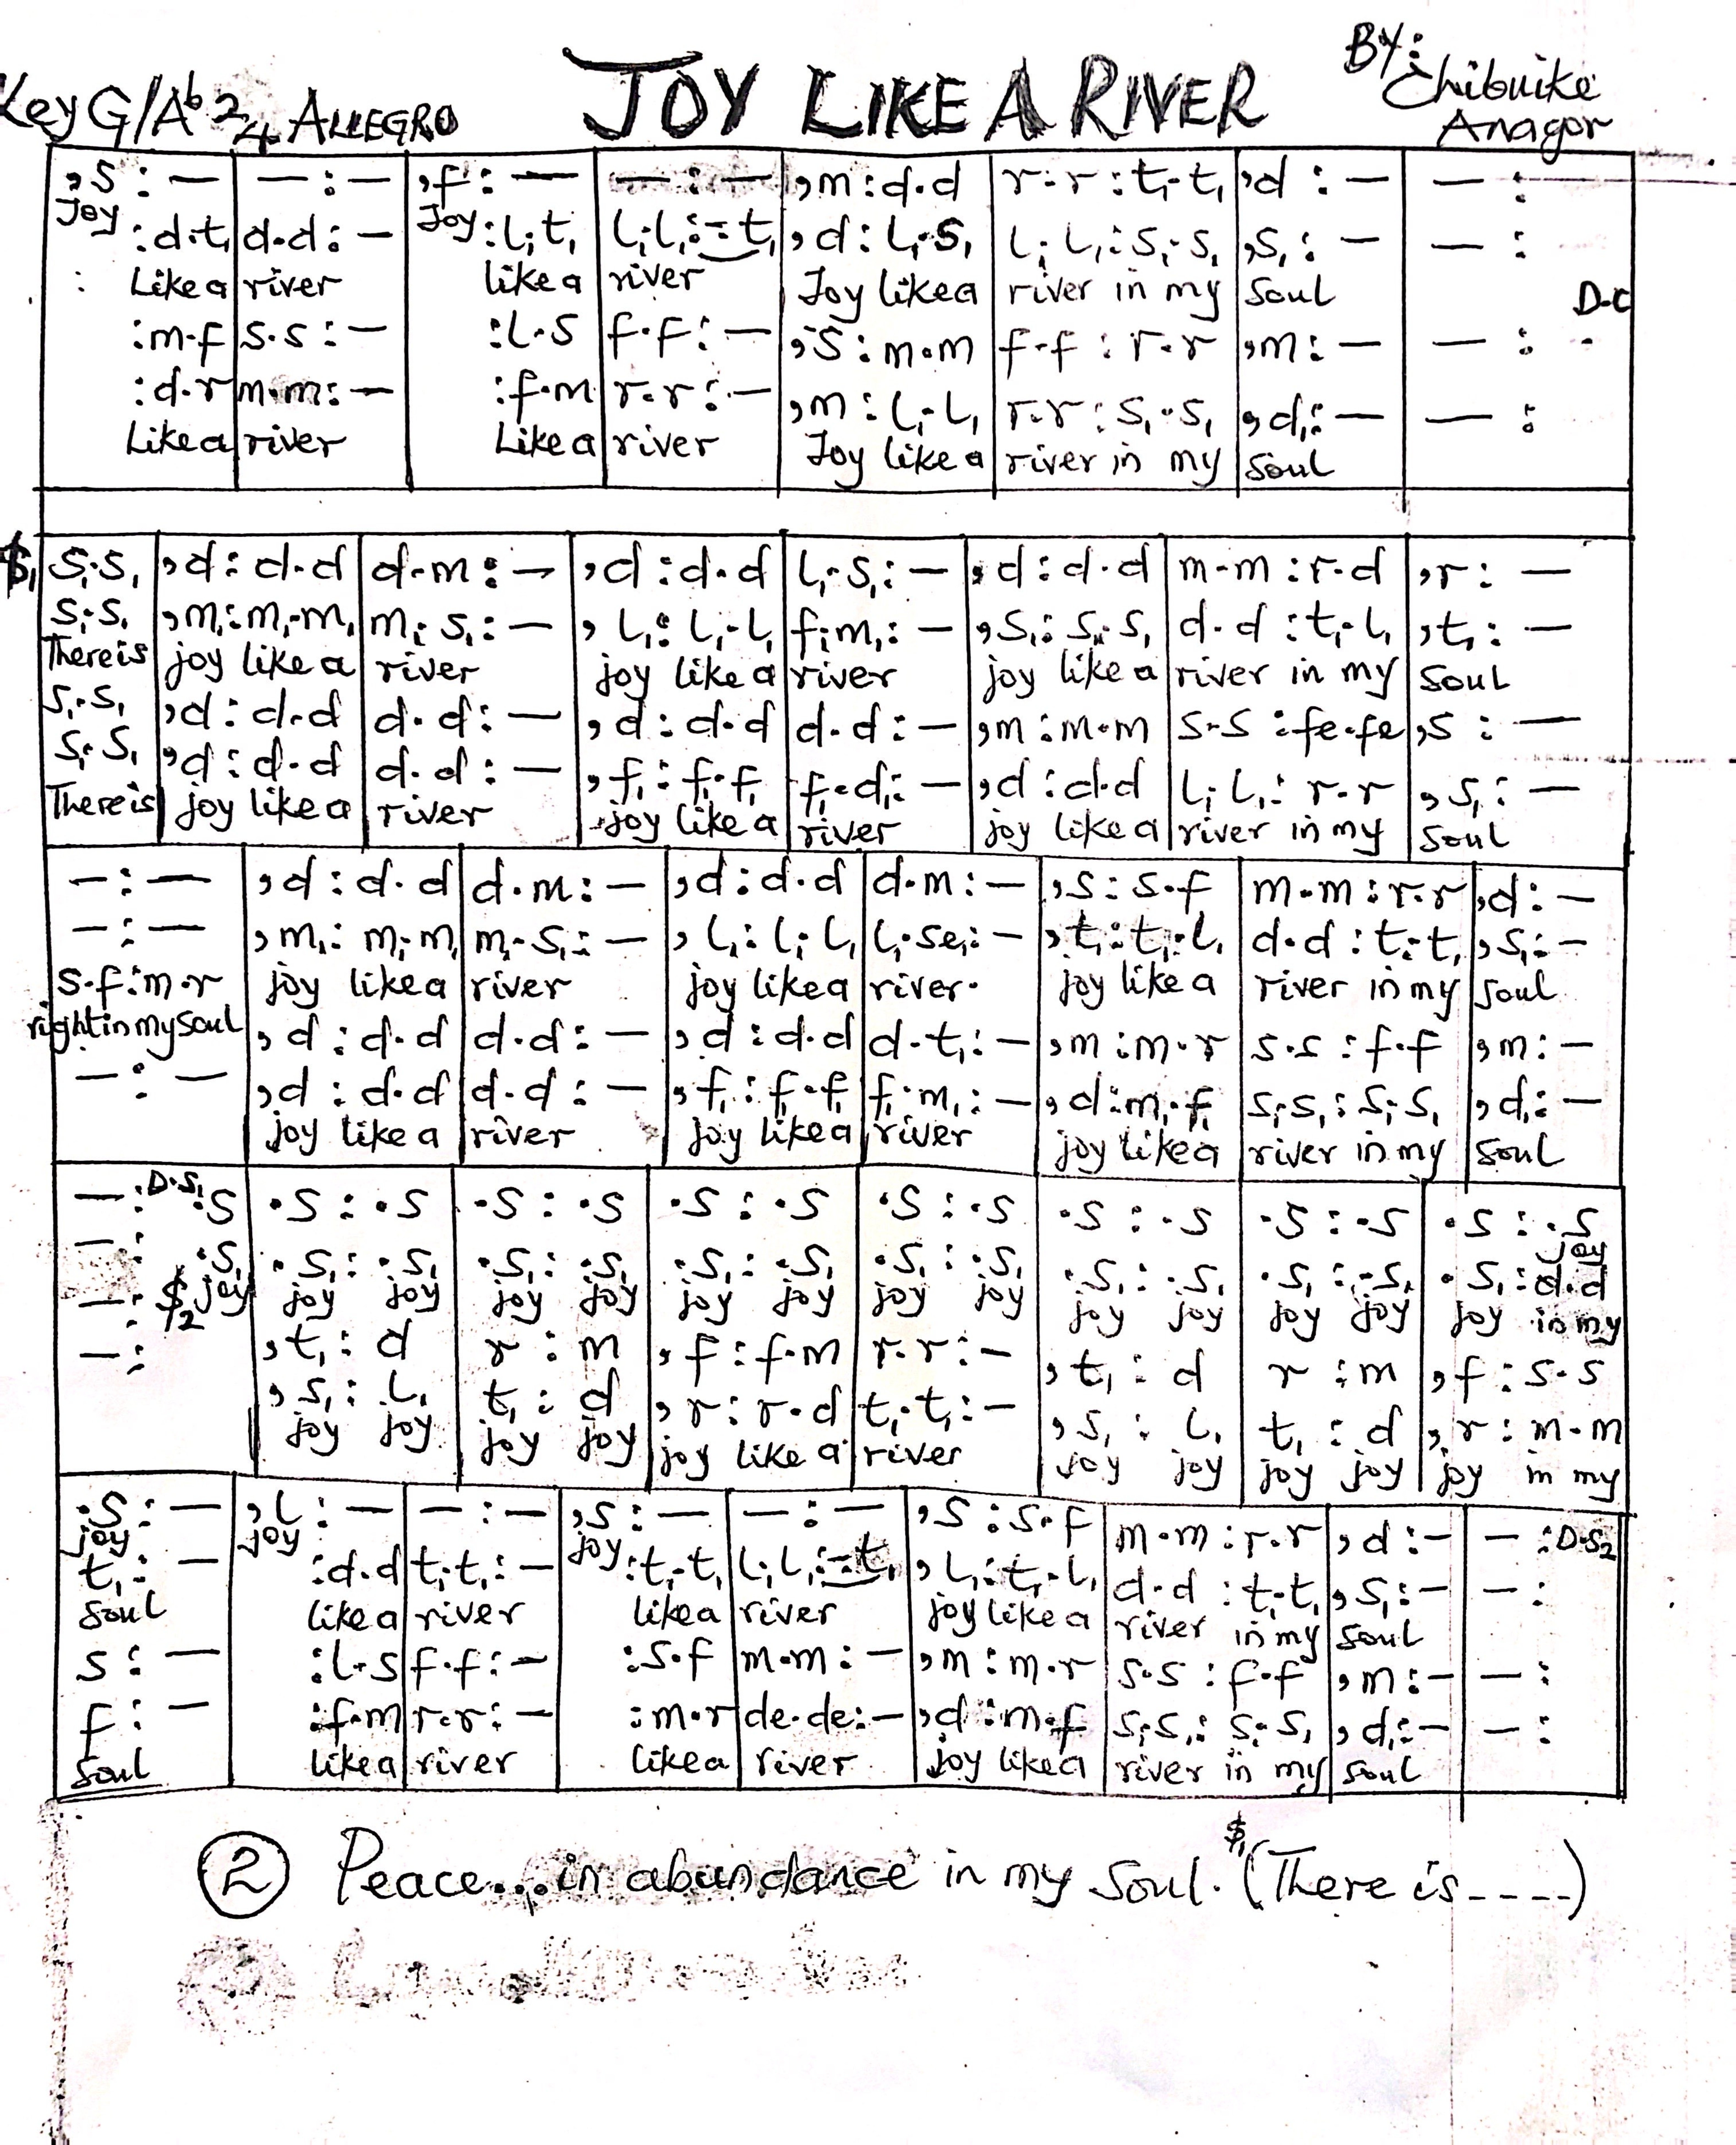 BY: Chibuike Anagor
Key G/Ab 2/4 ALLEGRO JOY LIKE A RIVER
,s : — | — : — | ,f : — | — : — | ,m : d.d | r.r : t₁.t₁ | ,d : — | — :
Joy Joy
: d.t₁ | d.d : — | : l₁.t₁ | l₁.l₁ : =.t₁ | ,d : l₁.s₁ | l₁.l₁ : s₁.s₁ | ,s₁ : — | — :
Like a river like a river Joy like a river in my Soul
D.C
: m.f | s.s : — | : l.s | f.f : — | ,s : m.m | f.f : r.r | ,m : — | — :
: d.r | m.m : — | : f.m | r.r : — | ,m : l₁.l₁ | r.r : s₁.s₁ | ,d₁ : — | — :
Like a river Like a river Joy like a river in my Soul
$₁ s₁.s₁ | ,d : d.d | d.m : — | ,d : d.d | l₁.s₁ : — | ,d : d.d | m.m : r.d | ,r : —
s₁.s₁ | ,m₁ : m₁.m₁ | m₁.s₁ : — | ,l₁ : l₁.l₁ | f₁.m₁ : — | ,s₁ : s₁.s₁ | d.d : t₁.l₁ | ,t₁ : —
There is joy like a river joy like a river joy like a river in my Soul
s₁.s₁ | ,d : d.d | d.d : — | ,d : d.d | d.d : — | ,m : m.m | s.s : fe.fe | ,s : —
s₁.s₁ | ,d : d.d | d.d : — | ,f₁ : f₁.f₁ | f₁.d₁ : — | ,d : d.d | l₁.l₁ : r.r | ,s₁ : —
There is joy like a river joy like a river joy like a river in my Soul
— : — | ,d : d.d | d.m : — | ,d : d.d | d.m : — | ,s : s.f | m.m : r.r | ,d : —
— : — | ,m₁ : m₁.m₁ | m₁.s₁ : — | ,l₁ : l₁.l₁ | l₁.se₁ : — | ,t₁ : t₁.l₁ | d.d : t₁.t₁ | ,s₁ : —
joy like a river joy like a river. joy like a river in my Soul
s.f : m.r | ,d : d.d | d.d : — | ,d : d.d | d.t₁ : — | ,m : m.r | s.s : f.f | ,m : —
right in my soul
— : — | ,d : d.d | d.d : — | ,f₁ : f₁.f₁ | f₁.m₁ : — | ,d : m₁.f₁ | s₁.s₁ : s₁.s₁ | ,d₁ : —
joy like a river joy like a river joy like a river in my Soul
— : D.S₁ .s | .s : .s | .s : .s | .s : .s | .s : .s | .s : .s | .s : .s | .s : .s
joy
— : .s₁ | .s₁ : .s₁ | .s₁ : .s₁ | .s₁ : .s₁ | .s₁ : .s₁ | .s₁ : .s₁ | .s₁ : .s₁ | .s₁ : d.d
$₂ joy joy joy joy joy joy joy joy joy joy joy joy joy joy in my
— : | ,t₁ : d | r : m | ,f : f.m | r.r : — | ,t₁ : d | r : m | ,f : s.s
— : | ,s₁ : l₁ | t₁ : d | ,r : r.d | t₁.t₁ : — | ,s₁ : l₁ | t₁ : d | ,r : m.m
joy joy joy joy joy like a river joy joy joy joy joy in my
.s : — | ,l : — | — : — | ,s : — | — : — | ,s : s.f | m.m : r.r | ,d : — | — : D.S₂
joy joy joy
t₁ : — | : d.d | t₁.t₁ : — | : t₁.t₁ | l₁.l₁ : =.t₁ | ,l₁ : t₁.l₁ | d.d : t₁.t₁ | ,s₁ : — | — :
Soul like a river like a river joy like a river in my Soul
s : — | : l.s | f.f : — | : s.f | m.m : — | ,m : m.r | s.s : f.f | ,m : — | — :
f : — | : f.m | r.r : — | : m.r | de.de : — | ,d : m₁.f₁ | s₁.s₁ : s₁.s₁ | ,d₁ : — | — :
Soul like a river like a river joy like a river in my Soul
② Peace...in abundance in my Soul. $₁ (There is-----)